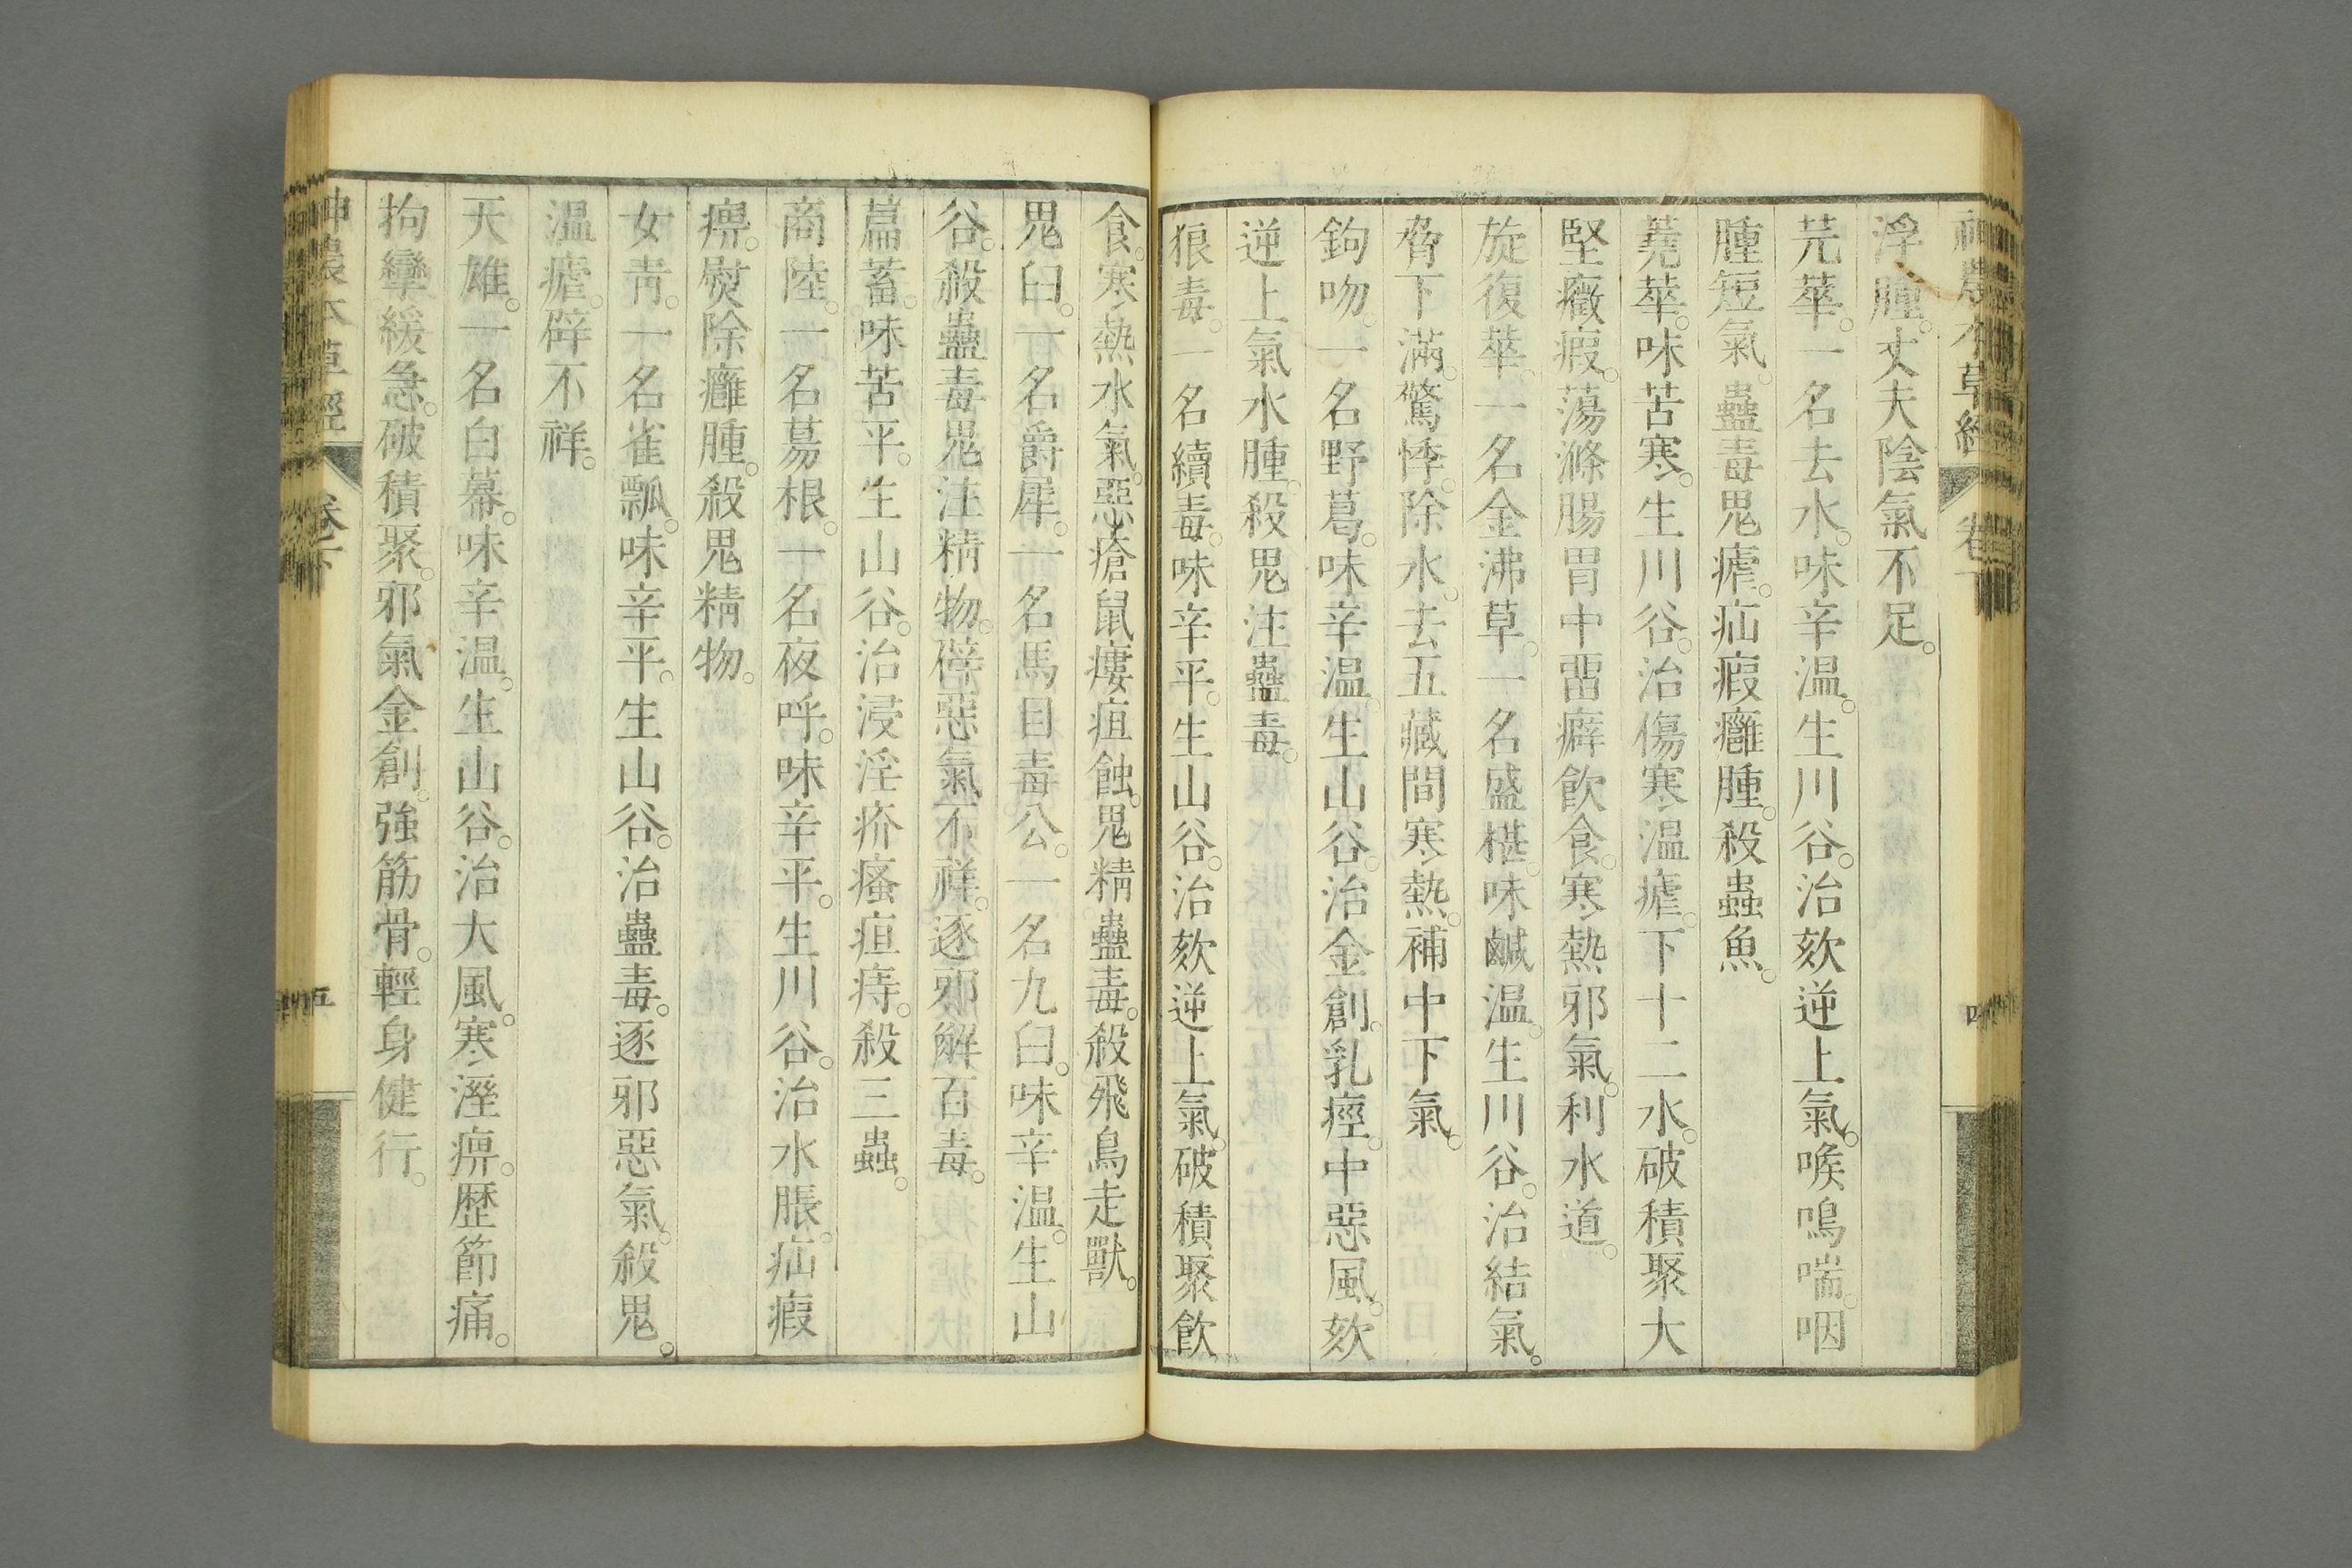 神農本草經 卷下 四
浮腫。丈夫陰氣不足。
芫華。一名去水。味辛温。生川谷。治欬逆上氣。喉鳴喘。咽
腫短氣。蠱毒鬼瘧。疝瘕癰腫。殺蟲魚。
蕘華。味苦寒。生川谷。治傷寒温瘧。下十二水。破積聚大
堅癥瘕。蕩滌腸胃中畱癖飲食。寒熱邪氣。利水道。
旋復華。一名金沸草。一名盛椹。味鹹温。生川谷。治結氣。
脅下滿。驚悸。除水。去五藏間寒熱。補中下氣。
鉤吻。一名野葛。味辛温。生山谷。治金創。乳痙。中惡風。欬
逆上氣水腫。殺鬼注蠱毒。
狼毒。一名續毒。味辛平。生山谷。治欬逆上氣。破積聚飲
食。寒熱水氣。惡瘡鼠瘻疽蝕。鬼精蠱毒。殺飛鳥走獸。
鬼臼。一名爵犀。一名馬目毒公。一名九臼。味辛温。生山
谷。殺蠱毒鬼注精物。辟惡氣不祥。逐邪解百毒。
萹蓄。味苦平。生山谷。治浸淫疥瘙疽痔。殺三蟲。
商陸。一名募根。一名夜呼。味辛平。生川谷。治水脹。疝瘕
痹。熨除癰腫。殺鬼精物。
女青。一名雀瓢。味辛平。生山谷。治蠱毒。逐邪惡氣。殺鬼。
温瘧。辟不祥。
天雄。一名白幕。味辛温。生山谷。治大風。寒溼痹。歷節痛。
拘攣緩急。破積聚。邪氣金創。強筋骨。輕身健行。
神農本草經 卷下 五